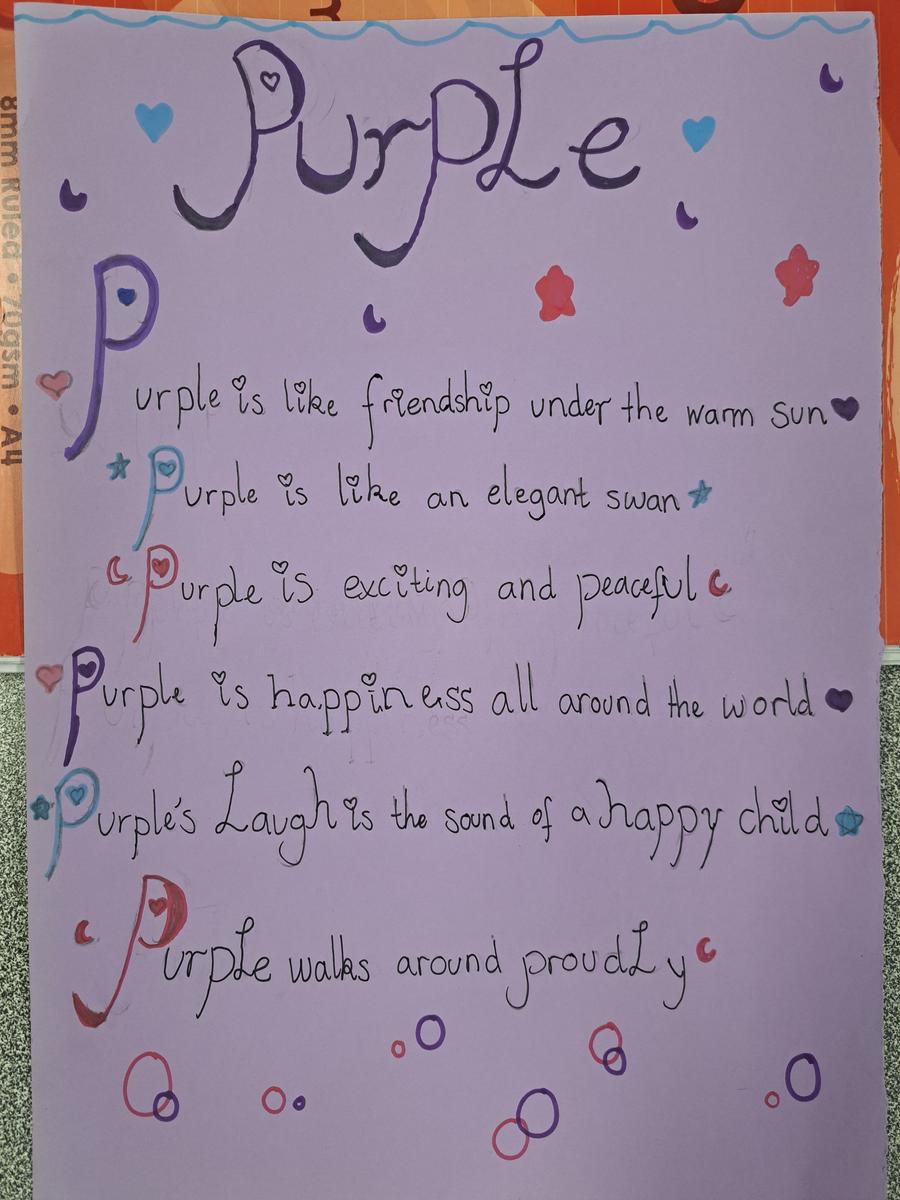 PurpLe
Purple is like friendship under the warm sun
Purple is like an elegant swan
Purple is exciting and peaceful
Purple is happiness all around the world
Purple's Laugh is the sound of a happy child
PurpLe walks around proudLy
8mm Ruled • 70gsm • A4